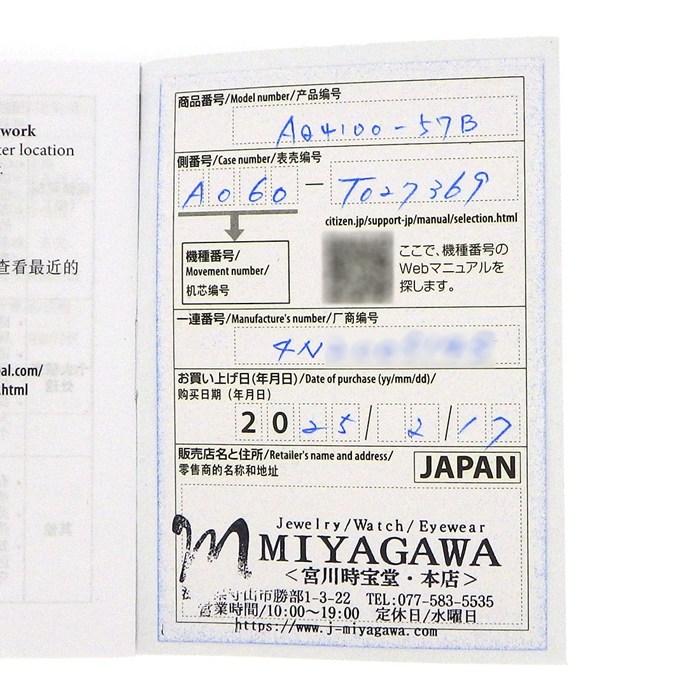 work
ter location
查看最近的
eal.com/
.html
商品番号/Model number/产品编号
AQ4100-57B
側番号/Case number/表壳编号
A060 - T027369
citizen.jp/support-jp/manual/selection.html
機種番号/
Movement number/
机芯编号
ここで、機種番号の
Webマニュアルを
探します。
一連番号/Manufacture's number/厂商编号
4N
お買い上げ日(年月日)/Date of purchase (yy/mm/dd)/
购买日期 (年月日)
2025/2/17
販売店名と住所/Retailer's name and address/
零售商的名称和地址
JAPAN
Jewelry/Watch/Eyewear
MIYAGAWA
<宮川時宝堂・本店>
守山市勝部1-3-22 TEL:077-583-5535
営業時間/10:00～19:00 定休日/水曜日
https://www.j-miyagawa.com